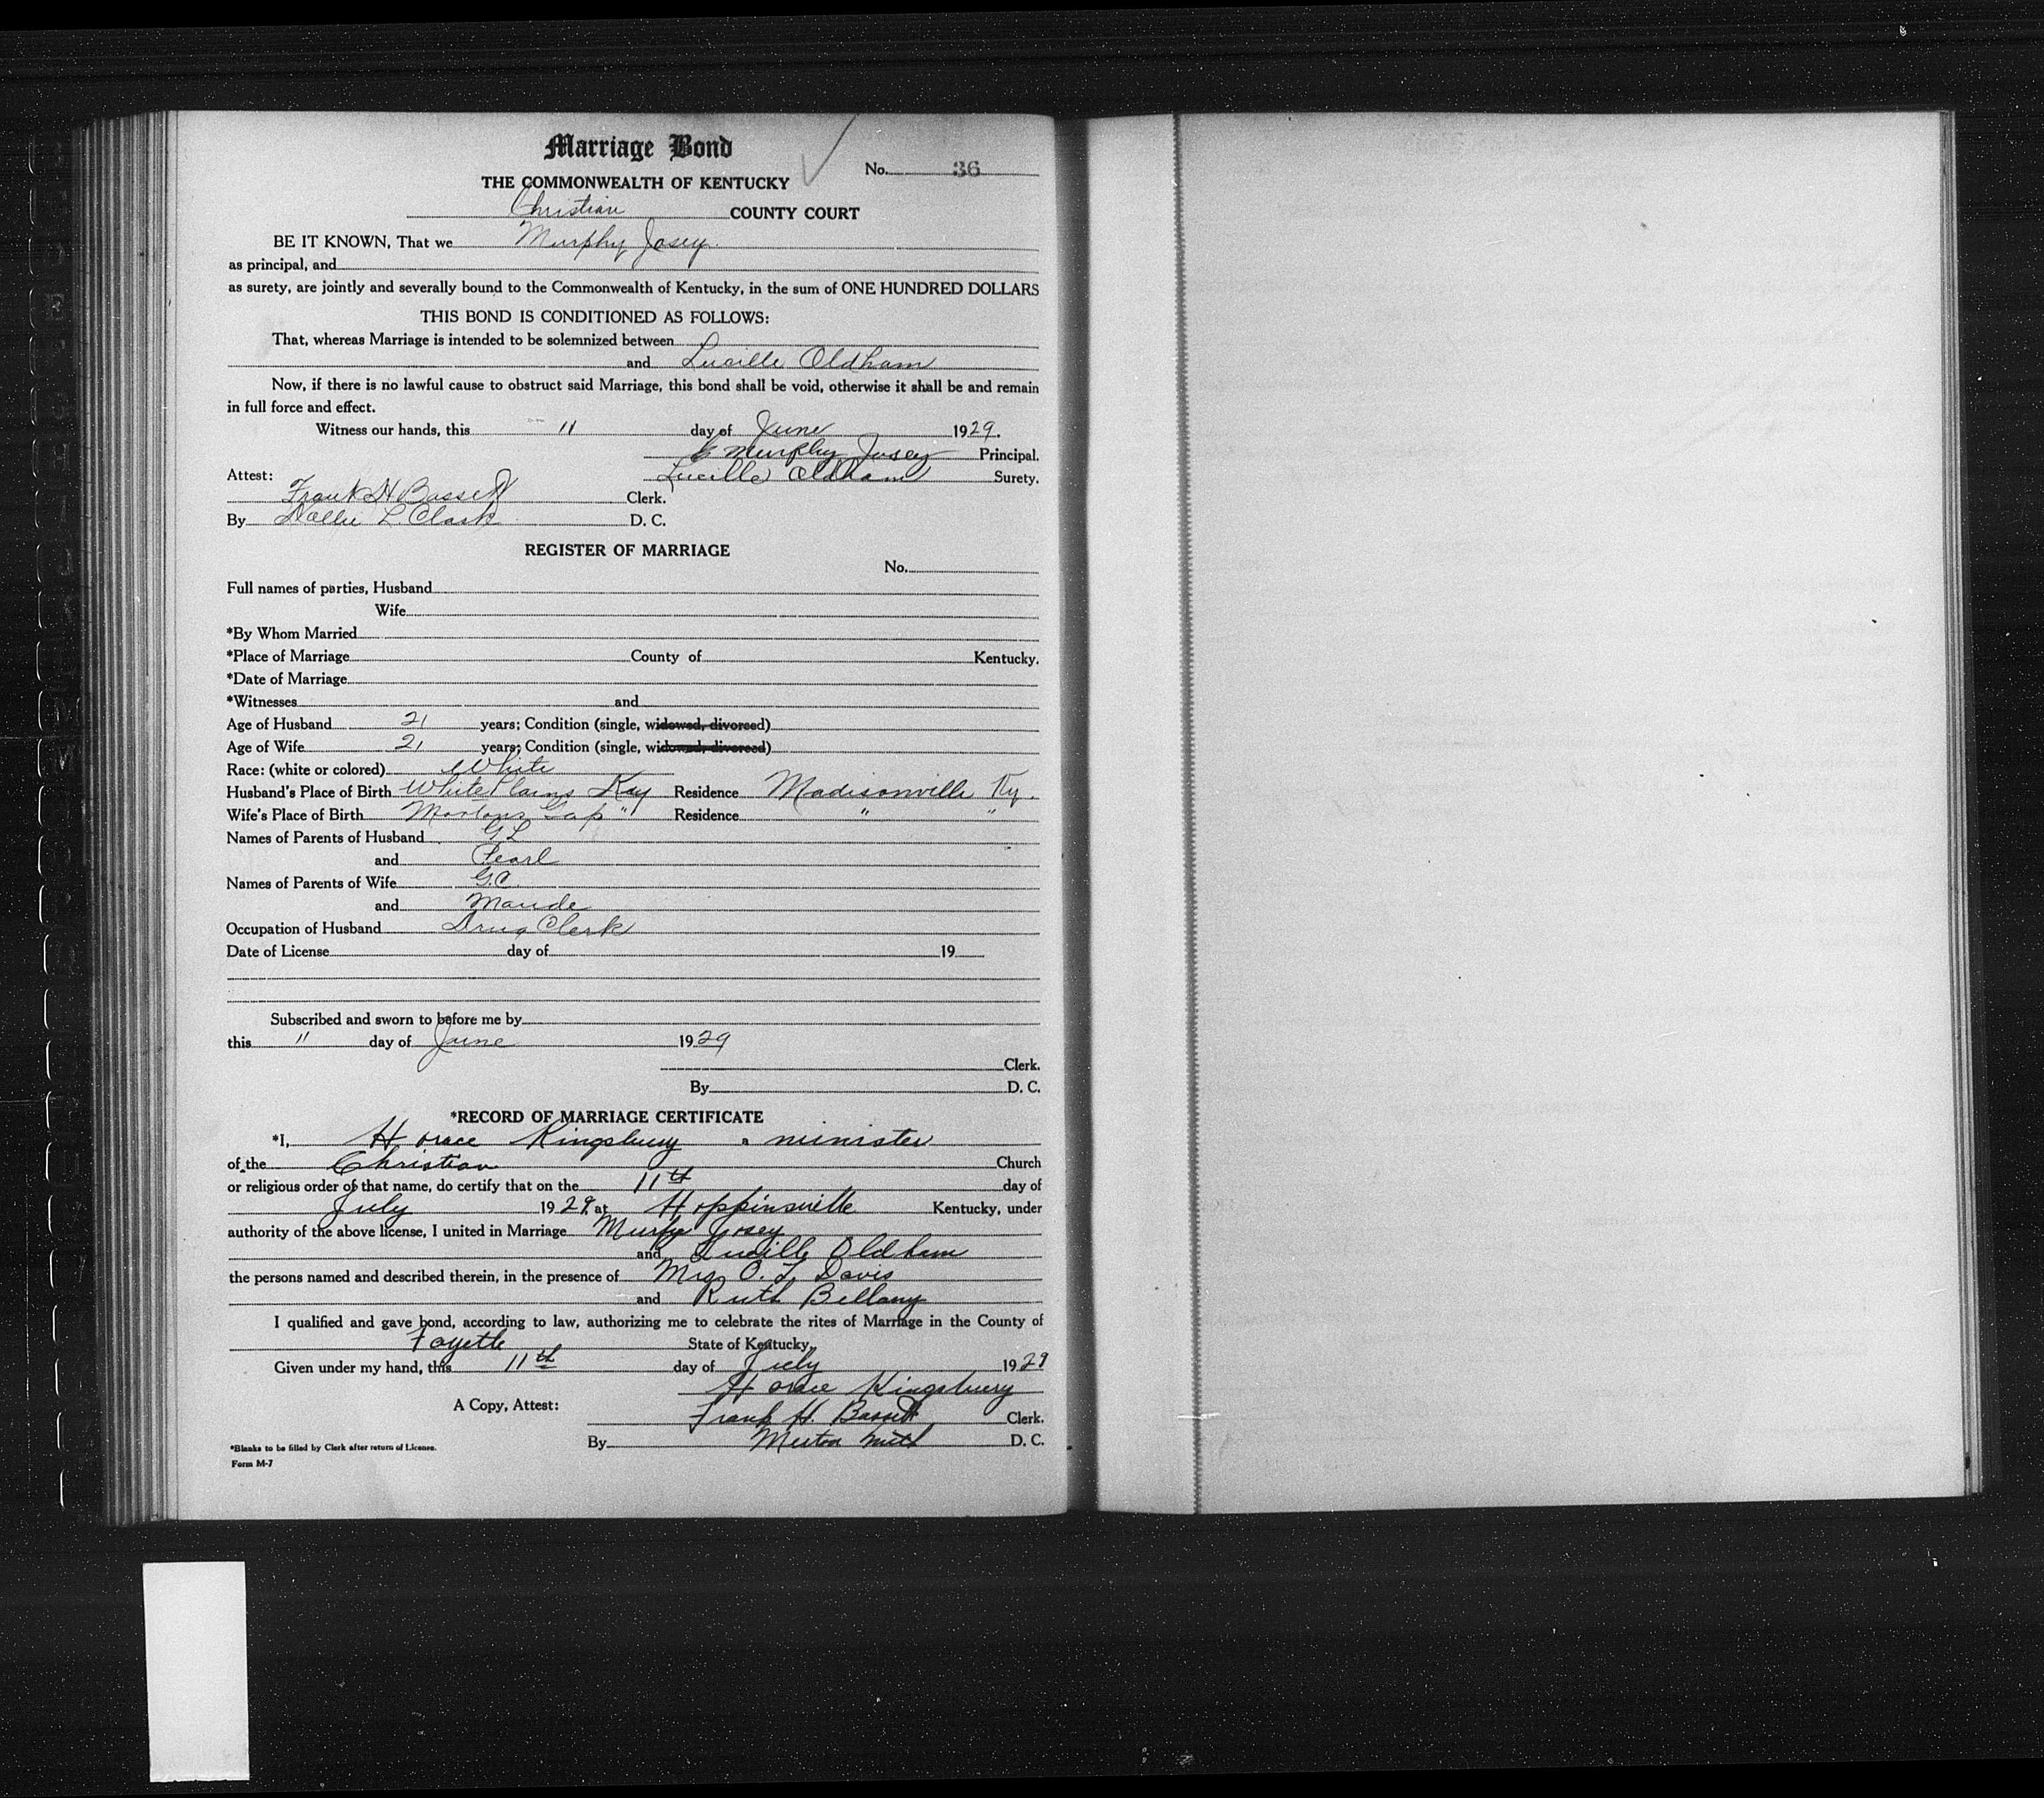 Marriage Bond
No. 36
THE COMMONWEALTH OF KENTUCKY
Christian COUNTY COURT
BE IT KNOWN, That we Murphy Josey
as principal, and
as surety, are jointly and severally bound to the Commonwealth of Kentucky, in the sum of ONE HUNDRED DOLLARS
THIS BOND IS CONDITIONED AS FOLLOWS:
That, whereas Marriage is intended to be solemnized between
and Lucille Oldham
Now, if there is no lawful cause to obstruct said Marriage, this bond shall be void, otherwise it shall be and remain
in full force and effect.
Witness our hands, this 11 day of June 1929.
Murphy Josey Principal.
Attest: Lucille Oldham Surety.
Frank H Bassett Clerk.
By L. Clark D. C.
REGISTER OF MARRIAGE
No.
Full names of parties, Husband
Wife
*By Whom Married
*Place of Marriage County of Kentucky.
*Date of Marriage
*Witnesses and
Age of Husband 21 years; Condition (single, widowed, divorced)
Age of Wife 21 years; Condition (single, widowed, divorced)
Race: (white or colored) White
Husband's Place of Birth White Plains Kay Residence Madisonville Ky.
Wife's Place of Birth Mortons Gap " Residence " "
Names of Parents of Husband G L
and Pearl
Names of Parents of Wife G.C.
and Maude
Occupation of Husband Drug Clerk
Date of License day of 19
Subscribed and sworn to before me by
this 11 day of June 1929
Clerk.
By D. C.
*RECORD OF MARRIAGE CERTIFICATE
*I, Horace Kingsbury a minister
of the Christian Church
or religious order of that name, do certify that on the 11th day of
July 1929, at Hoppinsville Kentucky, under
authority of the above license, I united in Marriage Murfy Josey
and Lucille Oldham
the persons named and described therein, in the presence of Mrs O. L. Davis
and Ruth Bellamy
I qualified and gave bond, according to law, authorizing me to celebrate the rites of Marriage in the County of
Fayette State of Kentucky,
Given under my hand, this 11th day of July 1929
Horace Kingsbury
A Copy, Attest: Frank H. Bassett Clerk.
By D. C.
*Blanks to be filled by Clerk after return of License.
Form M-7